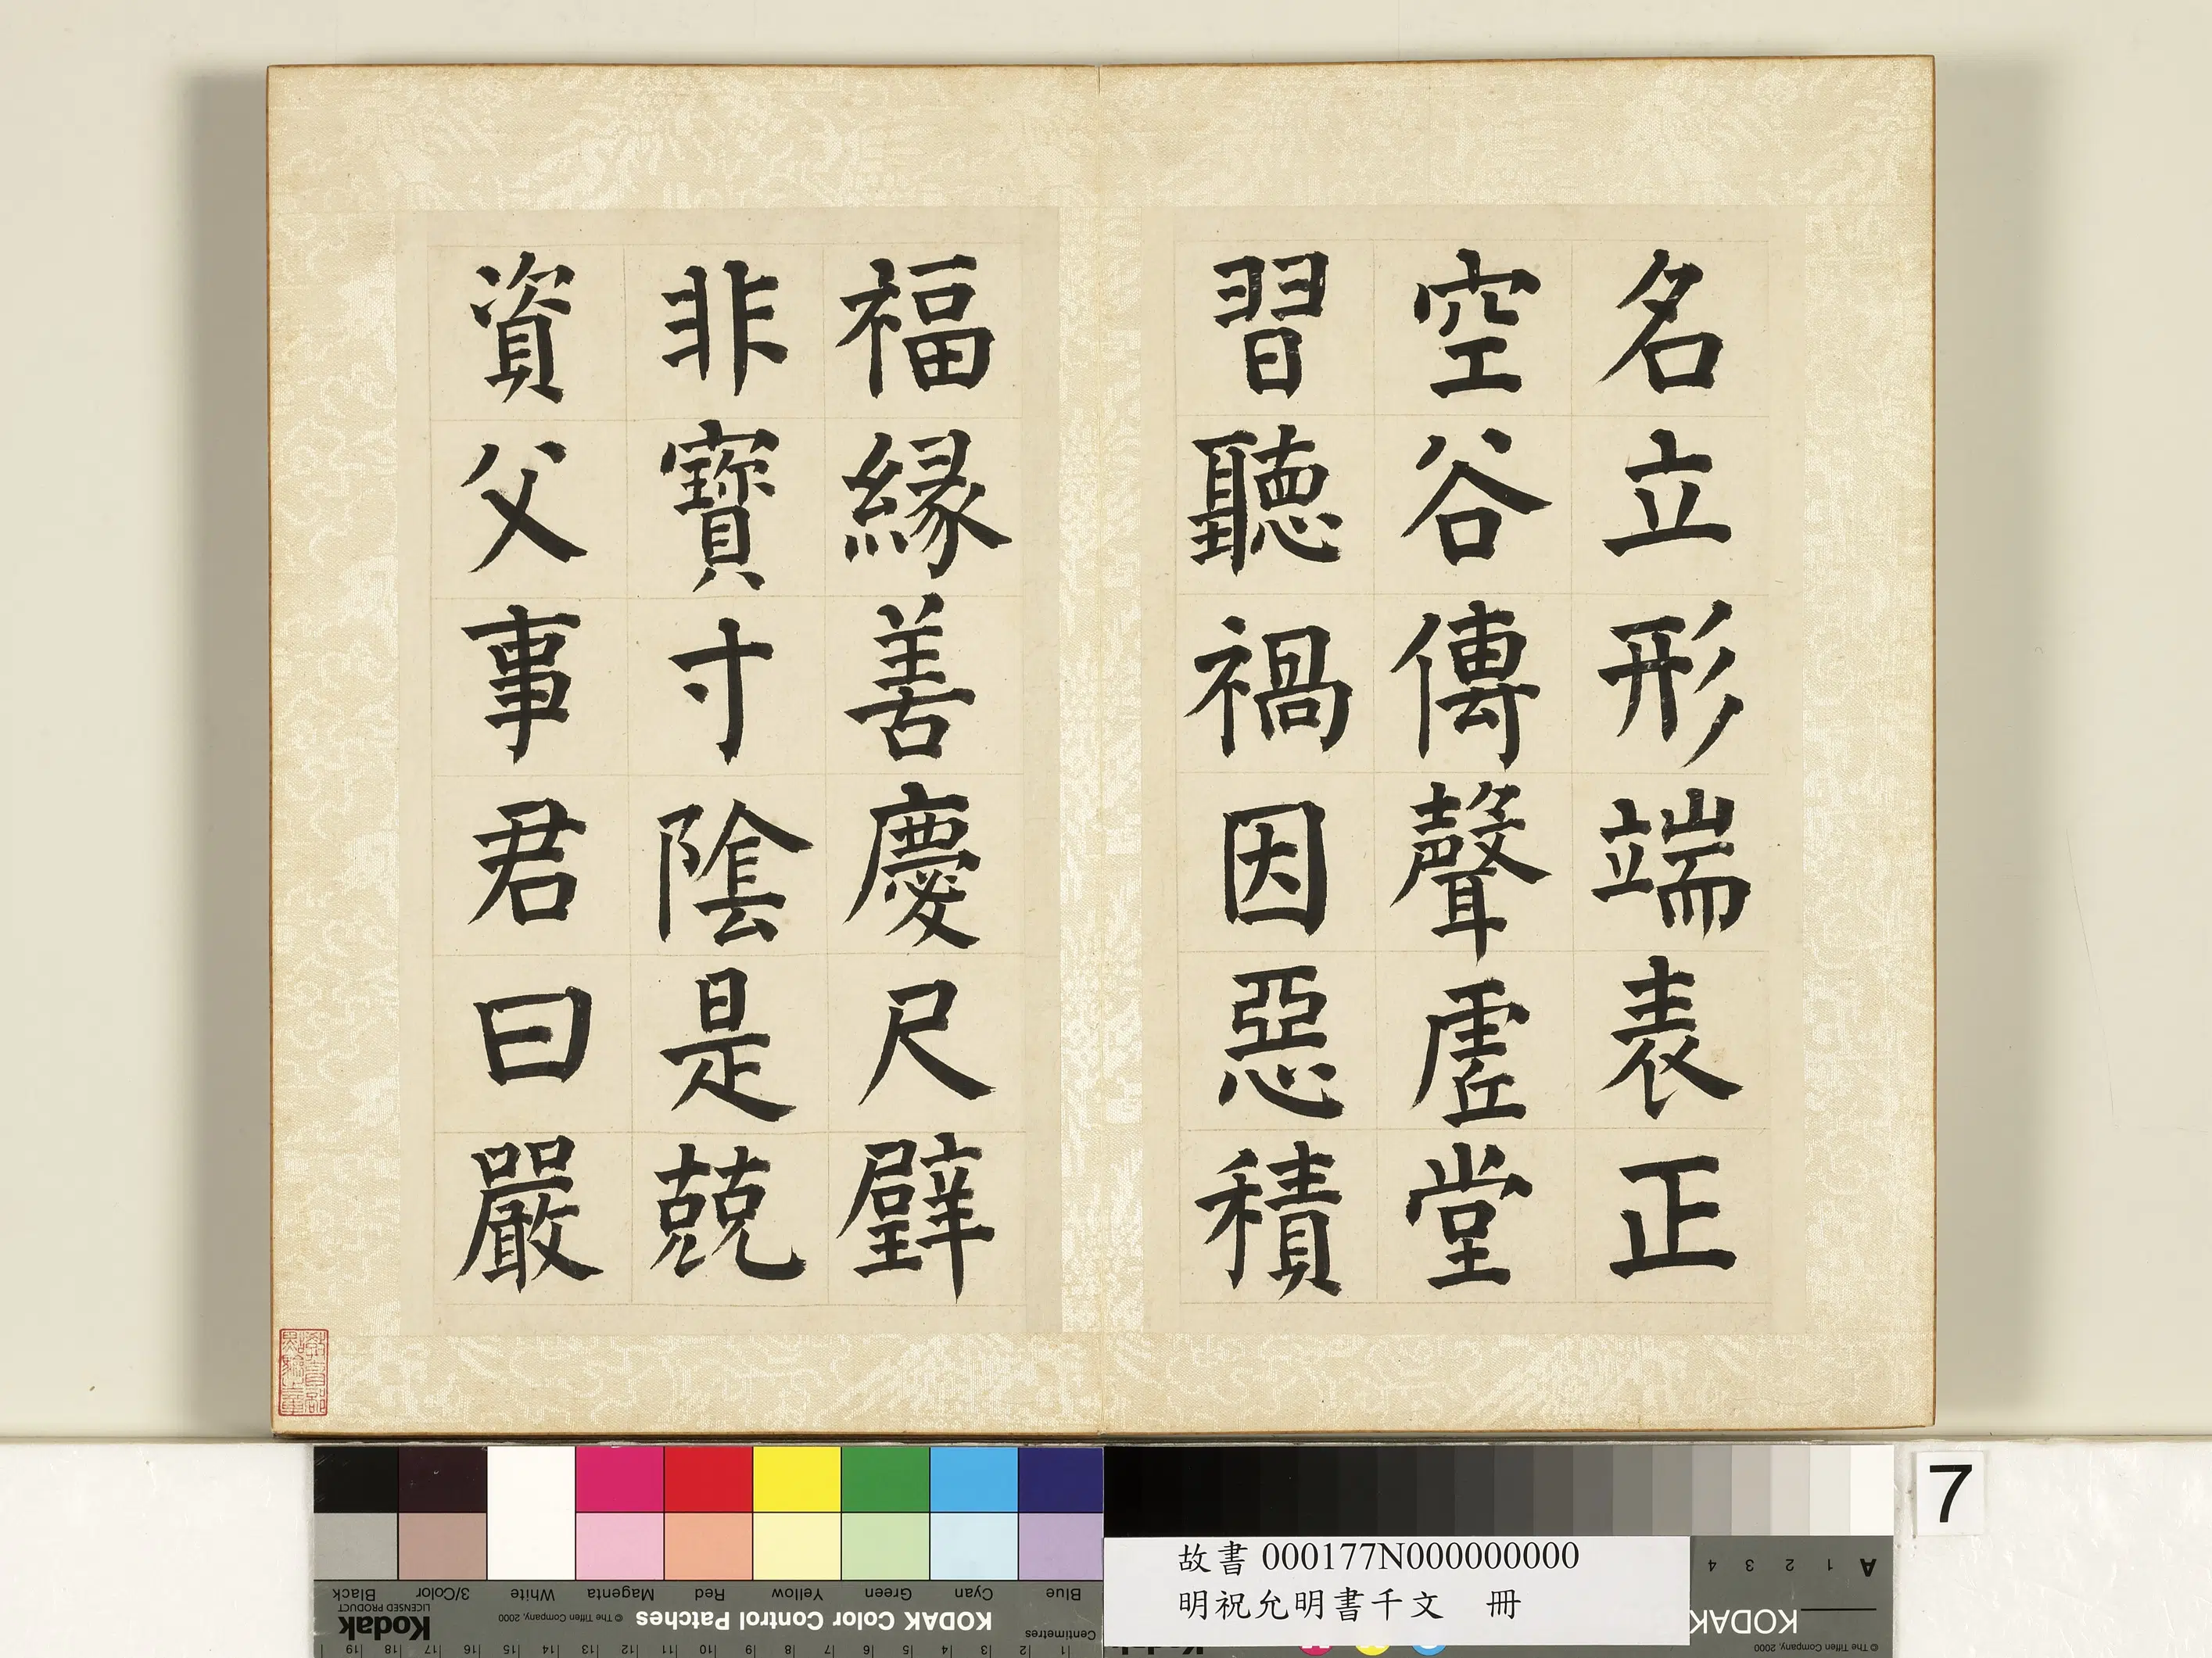 名立形端表正
空谷傳聲虛堂
習聽禍因惡積
福緣善慶尺璧
非寶寸陰是競
資父事君曰嚴
7
故書 000177N000000000
明祝允明書千文 冊
Blue Cyan Green Yellow Red Magenta White 3/Color Black
KODAK Color Control Patches © The Tiffen Company, 2000 Kodak
LICENSED PRODUCT
Centimetres
1 2 3 4 5 6 7 8 9 10 11 12 13 14 15 16 17 18 19
A 1 2 3 4
KODAK
© The Tiffen Company, 2000